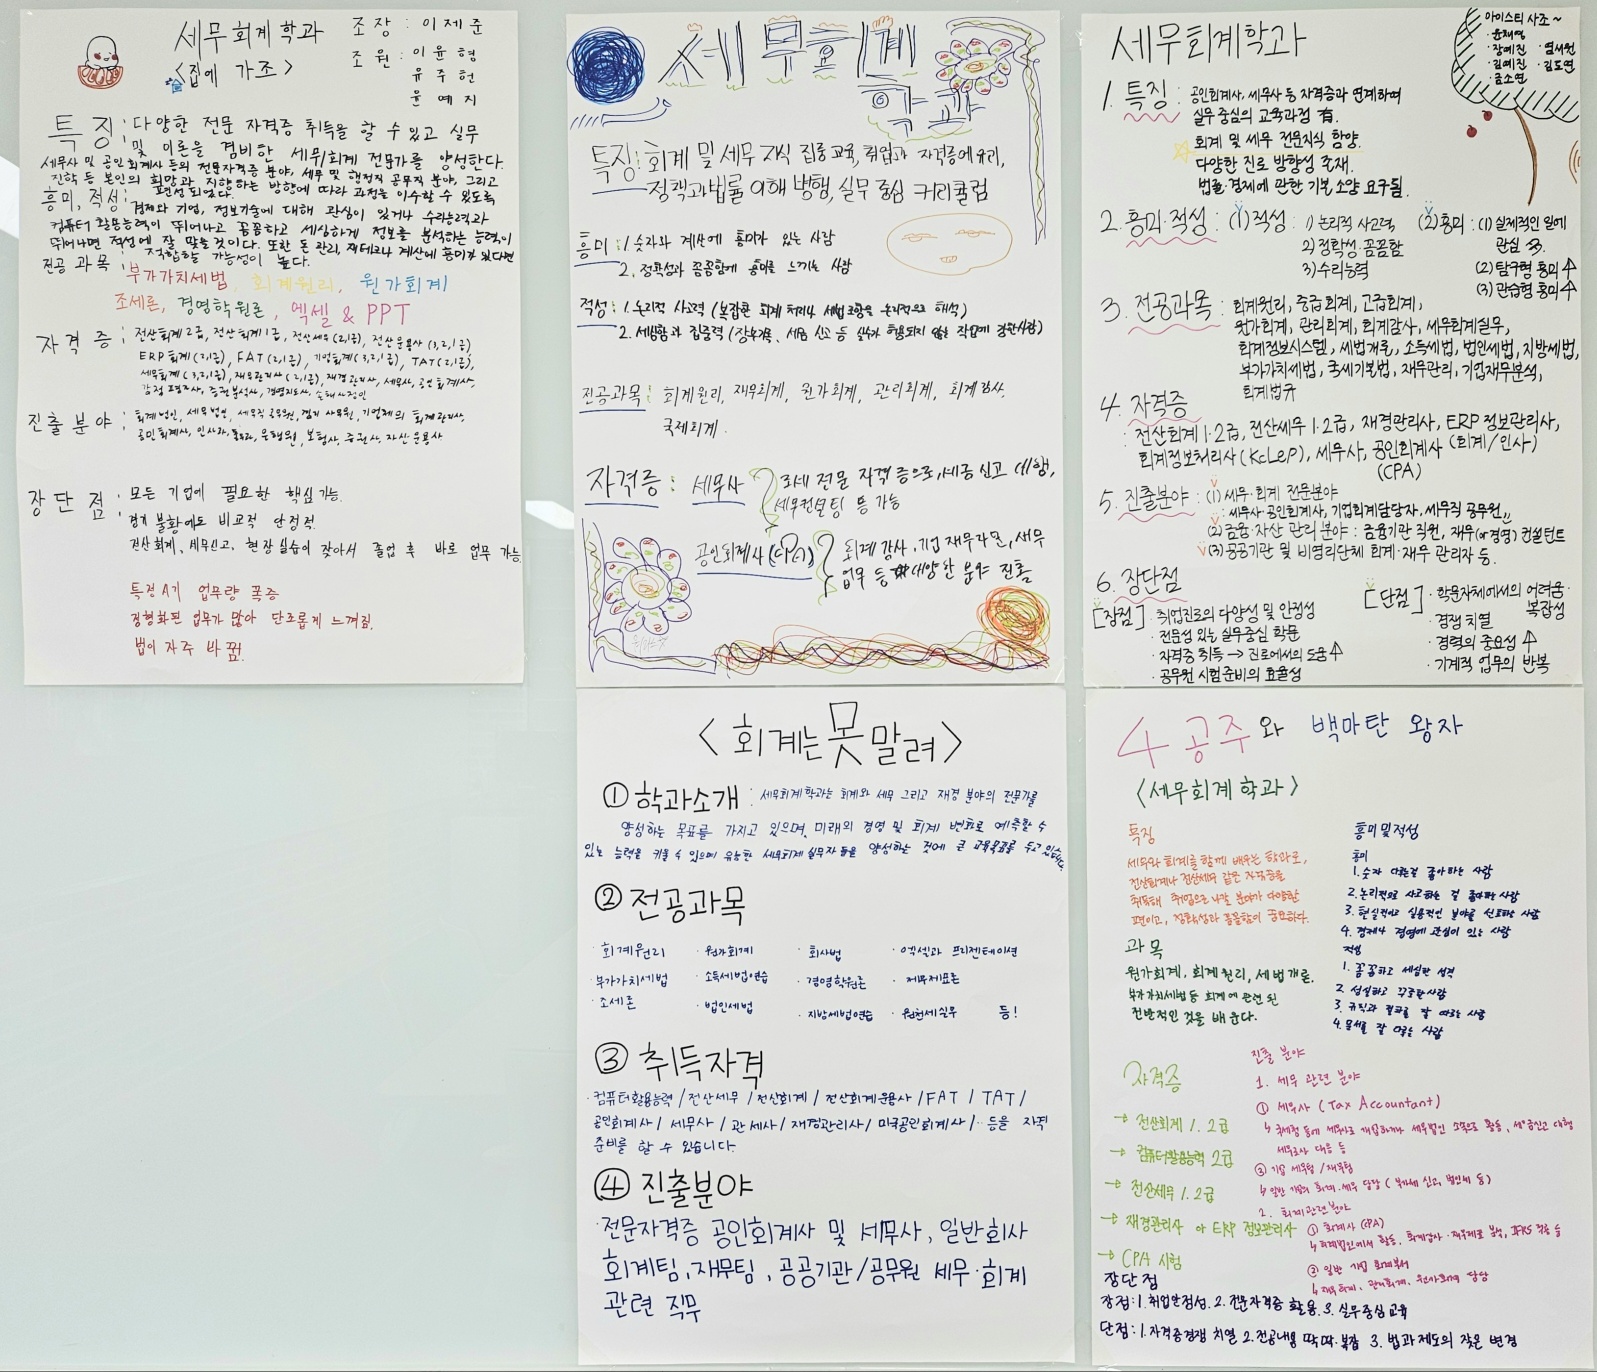 세무회계학과
<집에 가조>
조장 : 이제준
조원 : 이윤형
유주헌
윤예지
특징 : 다양한 전문 자격증 취득을 할 수 있고 실무
및 이론을 겸비한 세무회계 전문가를 양성한다.
세무사 및 공인회계사 등의 전문자격증 분야, 세무 및 행정직 공무직 분야, 그리고
진학 등 본인의 희망과 지향하는 방향에 따라 과정을 이수할 수 있도록
흥미, 적성 : 경제와 기업, 정보기술에 대해 관심이 있거나 수리능력과
컴퓨터 활용능력이 뛰어나고 꼼꼼하고 세심하게 정보를 분석하는 능력이
뛰어나면 적성에 잘 맞을 것이다. 또한 돈 관리, 재테크나 계산에 흥미가 있다면
적합할 가능성이 높다.
전공 과목 : 부가가치세법, 회계원리, 원가회계
조세론, 경영학원론, 엑셀 & PPT
자격증 : 전산회계 2급, 전산회계 1급, 전산세무(2,1급), 전산운용사(3,2,1급)
ERP회계(2,1급), FAT(2,1급), 기업회계(3,2,1급), TAT(2,1급),
세무회계(3,2,1급), 재무관리사(2,1급), 재경관리사, 세무사, 공인회계사,
감정평가사, 증권분석사, 경영지도사, 손해사정인
진출분야 : 회계법인, 세무법인, 세무직 공무원, 경리 사무원, 기업체의 회계관리자,
공인회계사, 인사과, 은행원, 보험사, 증권사, 자산운용사
장단점 : 모든 기업에 필요한 핵심 기능.
경기 불황에도 비교적 안정적.
전산회계, 세무신고, 현장 실습이 잦아서 졸업 후 바로 업무 가능
특정 시기 업무량 폭증
정형화된 업무가 많아 단조롭게 느껴짐.
법이 자주 바뀜.
세무회계
학과
특징 : 회계 및 세무 지식 집중 교육, 취업과 자격증에 유리,
정책과 법률 이해 병행, 실무 중심 커리큘럼
흥미 : 1. 숫자와 계산에 흥미가 있는 사람
2. 정확성과 꼼꼼함에 흥미를 느끼는 사람
적성 : 1. 논리적 사고력 (복잡한 회계 처리나 세법 조항을 논리적으로 해석)
2. 세심함과 집중력 (장부기록, 세금 신고 등 실수가 허용되지 않는 작업에 강한사람)
전공과목 : 회계원리, 재무회계, 원가회계, 관리회계, 회계감사,
국제회계.
자격증 : 세무사 조세 전문 자격증으로, 세금 신고 대행,
세무컨설팅 등 가능
공인회계사(CPA) 회계 감사, 기업 재무자문, 세무
업무 등 다양한 분야 진출
세무회계학과
아이스티 사조~
윤채영
· 장예진 · 염서원
· 김예진 · 김도연
· 금소연
1. 특징 : 공인회계사, 세무사 등 자격증과 연계하여
실무 중심의 교육과정 有.
회계 및 세무 전문지식 함양.
다양한 진로 방향성 존재.
법률·경제에 관한 기본 소양 요구됨.
2. 흥미·적성 : (1) 적성 : 1) 논리적 사고력
2) 정확성·꼼꼼함
3) 수리능력
(2) 흥미 : (1) 실제적인 일에
관심
(2) 탐구형 흥미↑
(3) 관습형 흥미↑
3. 전공과목 : 회계원리, 중급회계, 고급회계,
원가회계, 관리회계, 회계감사, 세무회계실무,
회계정보시스템, 세법개론, 소득세법, 법인세법, 지방세법,
부가가치세법, 국세기본법, 재무관리, 기업재무분석,
회계법규
4. 자격증
: 전산회계 1·2급, 전산세무 1·2급, 재경관리사, ERP 정보관리사,
회계정보처리사(KcLeP), 세무사, 공인회계사 (회계/인사)
(CPA)
5. 진출분야 : (1) 세무·회계 전문분야
: 세무사·공인회계사, 기업회계담당자, 세무직 공무원
(2) 금융·자산 관리 분야 : 금융기관 직원, 재무(or경영) 컨설턴트
(3) 공공기관 및 비영리단체 회계·재무 관리자 등.
6. 장단점
[장점] · 취업진로의 다양성 및 안정성
· 전문성 있는 실무중심 학문
· 자격증 취득 → 진로에서의 도움↑
· 공무원 시험준비의 효율성
[단점] · 학문자체에서의 어려움·
복잡성
· 경쟁 치열
· 경력의 중요성↑
· 기계적 업무의 반복
<회계는 못말려>
① 학과소개 : 세무회계학과는 회계와 세무 그리고 재경 분야의 전문가를
양성하는 목표를 가지고 있으며, 미래의 경영 및 회계 변화로 예측할 수
있는 능력을 키울 수 있으며 유능한 세무회계 실무자들을 양성하는 것에 큰 교육목표를 두고있습니다.
② 전공과목
· 회계원리 · 원가회계 · 회사법 · 엑셀과 프리젠테이션
· 부가가치세법 · 소득세법연습 · 경영학원론 · 재무제표론
· 조세론 · 법인세법 · 지방세법연습 · 원천세실무 등!
③ 취득자격
· 컴퓨터활용능력 / 전산세무 / 전산회계 / 전산회계운용사 / FAT / TAT /
공인회계사 / 세무사 / 관세사 / 재경관리사 / 미국공인회계사 /·· 등을 자격
준비를 할 수 있습니다.
④ 진출분야
· 전문자격증 공인회계사 및 세무사, 일반회사
회계팀, 재무팀, 공공기관/공무원 세무·회계
관련 직무
4공주와 백마탄 왕자
<세무회계학과>
특징
세무와 회계를 함께 배우는 학과로,
전산회계나 전산세무 같은 자격증을
취득해 취업으로 나갈 분야가 다양한
편이고, 정확성과 꼼꼼함이 중요하다.
과목
원가회계, 회계원리, 세법개론,
부가가치세법 등 회계에 관련된
전반적인 것을 배운다.
흥미 및 적성
흥미
1. 숫자 다루는걸 좋아하는 사람
2. 논리적으로 사고하는 걸 좋아하는 사람
3. 현실적이고 실용적인 분야를 선호하는 사람
4. 경제나 경영에 관심이 있는 사람
적성
1. 꼼꼼하고 세심한 성격
2. 성실하고 꾸준한사람
3. 규칙과 절차를 잘 따르는 사람
4. 문서를 잘 다루는 사람
자격증
→ 전산회계 1.2급
→ 컴퓨터활용능력 2급
→ 전산세무 1.2급
→ 재경관리사 와 ERP 정보관리사
→ CPA 시험
진출 분야
1. 세무 관련 분야
① 세무사 (Tax Accountant)
↳ 국세청 등에 세무사로 개업하거나 세무법인 소속으로 활동, 세금신고 대행
세무조사 대응 등
② 기업 세무팀/재무팀
↳ 일반 기업의 회계·세무 담당 (부가세 신고, 법인세 등)
2. 회계관련분야
① 회계사 (CPA)
↳ 회계법인에서 활동, 회계감사·재무제표 분석, IFRS 적용 등
② 일반 기업 회계부서
↳ 재무회계, 관리회계, 원가회계 담당
장단점
장점 : 1. 취업안정성. 2. 전문자격증 활용. 3. 실무중심 교육
단점 : 1. 자격증경쟁 치열 2. 전공내용 딱딱·복잡 3. 법과 제도의 잦은 변경